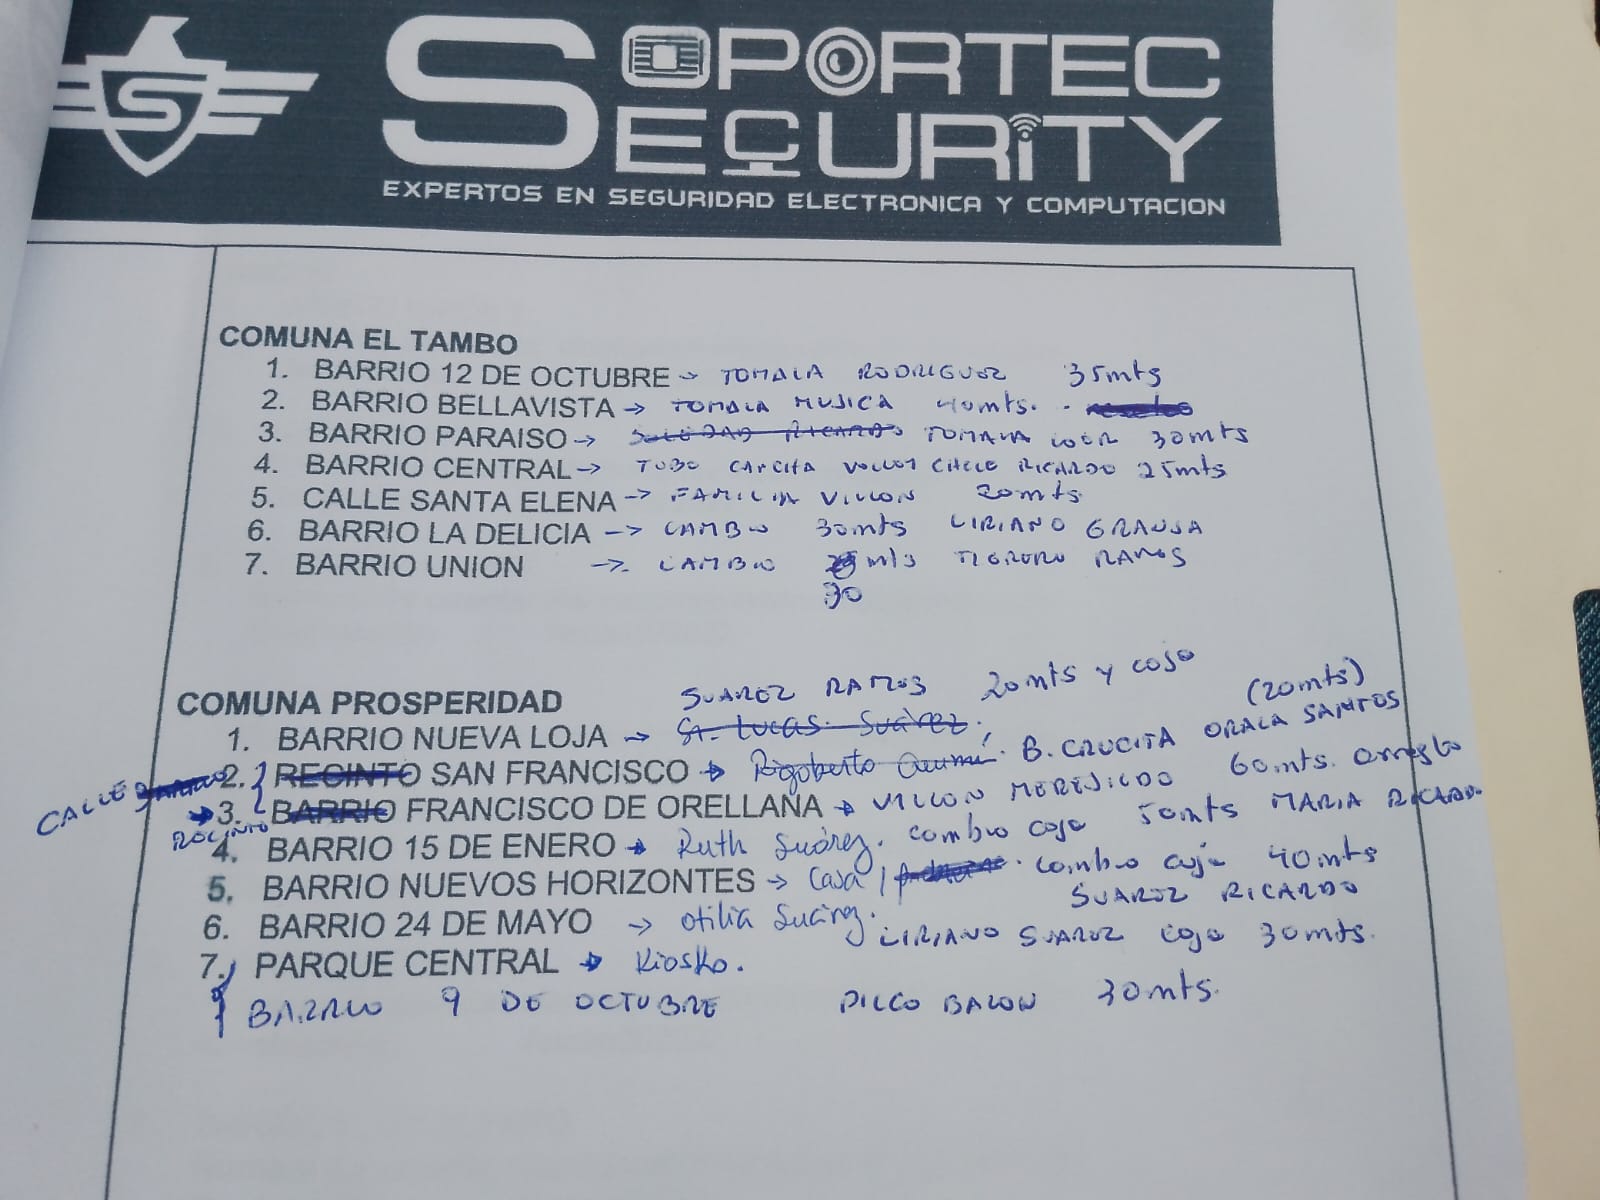 SOPORTEC
SECURITY
EXPERTOS EN SEGURIDAD ELECTRONICA Y COMPUTACION
COMUNA EL TAMBO
1. BARRIO 12 DE OCTUBRE → TOMALA RODRIGUEZ 35mts
2. BARRIO BELLAVISTA → TOMALA MUJICA 40mts.
3. BARRIO PARAISO → SOLEDAD RICARDO TOMALA 30mts
4. BARRIO CENTRAL → TUBO RICARDO 25mts
5. CALLE SANTA ELENA → FAMILIA VILLON 20mts
6. BARRIO LA DELICIA → CAMBIO 30mts LIRIANO
7. BARRIO UNION → CAMBIO mts TIGRERO RAMOS
30
SUAREZ RAMOS 20mts y caja
COMUNA PROSPERIDAD
(20mts)
1. BARRIO NUEVA LOJA → Sr. Lucas Suárez.
CALLE BARRIO 2. RECINTO SAN FRANCISCO → Rigoberto B. CRUCITA ORALA SANTOS
→ 3. BARRIO FRANCISCO DE ORELLANA → VILLON MEREJILDO 60mts. arreglo
RECINTO
4. BARRIO 15 DE ENERO → Ruth Suárez. cambio caja 50mts MARIA RICARDO
5. BARRIO NUEVOS HORIZONTES → Casa cambio caja 40mts
SUAREZ RICARDO
6. BARRIO 24 DE MAYO → Otilia Suárez. LIRIANO SUAREZ caja 30mts.
7. PARQUE CENTRAL → Kiosko.
BARRIO 9 DE OCTUBRE 30mts.